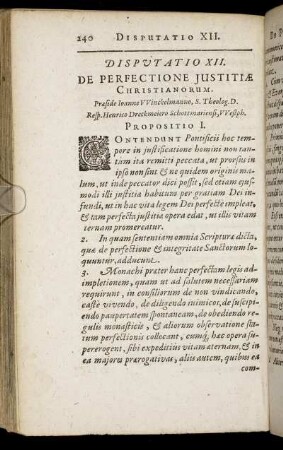 240 DISPUTATIO XII.
DISPVTATIO XII.
DE PERFECTIONE JUSTITIÆ
CHRISTIANORUM.
Præside Ioanne VVinckelmanno, S. Theolog. D.
Resp. Henrico Dreckmeiero Schottmariensi, VVestph.
PROPOSITIO I.
CONTENDUNT Pontificii hoc tem-
pore in justificatione homini non tan-
tùm ita remitti peccata, ut prorsus in
ipso non sint & ne quidem originis ma-
lum, ut inde peccator dici possit, sed etiam ejus-
modi illi justitiæ habitum per gratiam Dei in-
fundi, ut in hac vita legem Dei perfectè impleat,
& tam perfecta justitiæ opera edat, ut illis vitam
æternam promereatur.
2. In quam sententiam omnia Scripturæ dicta,
quæ de perfectione & integritate Sanctorum lo-
quuntur, adducunt.
3. Monachi præter hanc perfectam legis ad-
impletionem, quam ut ad salutem necessariam
requirunt, in consiliorum de non vindicando,
castè vivendo, de diligendis inimicis, de suscipi-
endo paupertatem spontaneam, de obediendo re-
gulis monasticis, & aliorum observatione sta-
tum perfectionis collocant, cumq; hæc opera su-
pererogent, sibi expeditius vitam æternam, & in
ea majores prærogativas, aliis autem, quibus ea
com-